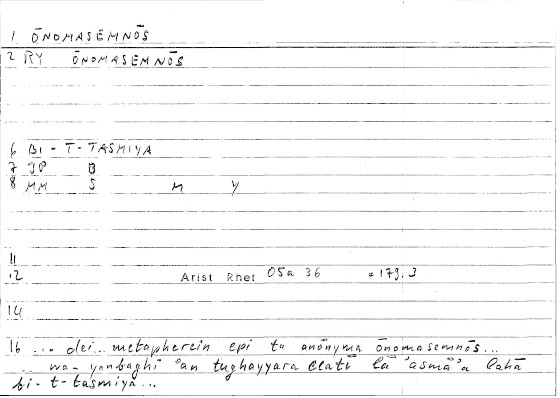 1 ŌNOMASĒMNŌS
2 RY ŌNOMASEMNŌS
6 BI-T-TASMIYA
7 JP B
8 MM S M Y
11
12 Arist Rhet 05a 36 = 179.3
14
16 ... dei... metapherein epi ta anōnyma ōnomasemnōs...
... wa-yanbaghī 'an tughayyara llatī lā 'asmā'a lahā
bi-t-tasmiya...